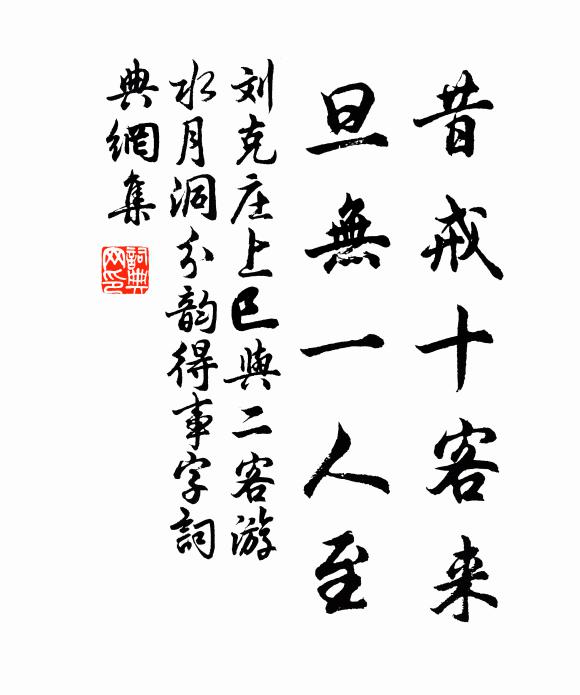 昔戒十客来
旦無一人至
刘克庄上巳與二客游
水月洞分韵得事字詞
典網集
詞典网印